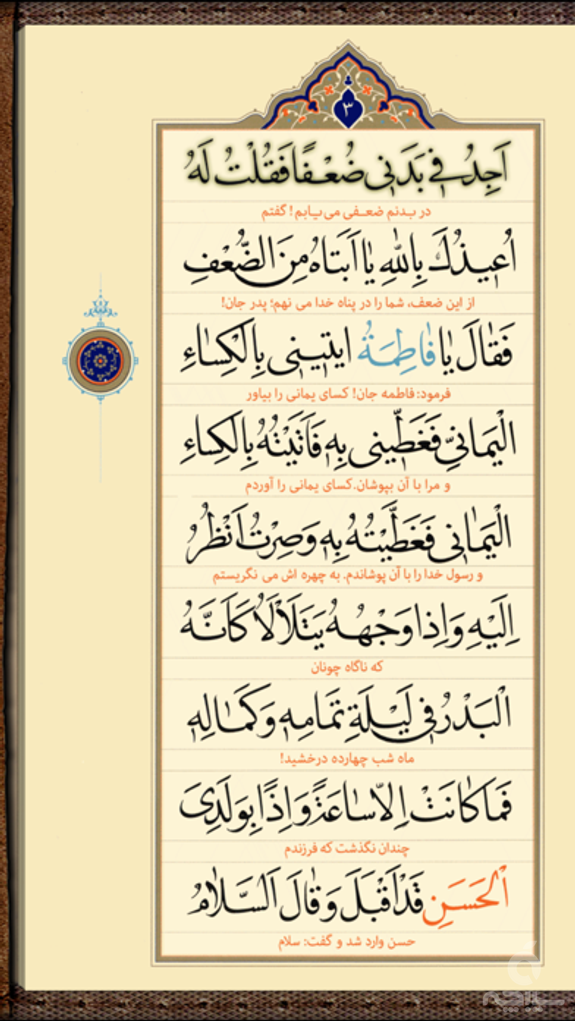 ۳
اَجِدُ فِي بَدَنِي ضُعْفًا فَقُلْتُ لَهُ
در بدنم ضعفی می‌یابم! گفتم
اُعِيذُكَ بِاللهِ يَا اَبَتَاهُ مِنَ الضُّعْفِ
از این ضعف، شما را در پناه خدا می نهم؛ پدر جان!
فَقَالَ يَا فَاطِمَةُ ايتِينِي بِالْكِسَاءِ
فرمود: فاطمه جان! کسای یمانی را بیاور
الْيَمَانِيِّ فَغَطِّينِي بِهِ فَاَتَيْتُهُ بِالْكِسَاءِ
و مرا با آن بپوشان. کسای یمانی را آوردم
الْيَمَانِي فَغَطَّيْتُهُ بِهِ وَصِرْتُ اَنْظُرُ
و رسول خدا را با آن پوشاندم. به چهره اش می نگریستم
اِلَيْهِ وَاِذَا وَجْهُهُ يَتَلَأْلَأُ كَاَنَّهُ
که ناگاه چونان
الْبَدْرُ فِي لَيْلَةِ تَمَامِهِ وَكَمَالِهِ
ماه شب چهارده درخشید!
فَمَا كَانَتْ اِلَّا سَاعَةً وَاِذًا بِوَلَدِيَ
چندان نگذشت که فرزندم
الْحَسَنِ قَدْ اَقْبَلَ وَقَالَ السَّلَامُ
حسن وارد شد و گفت: سلام